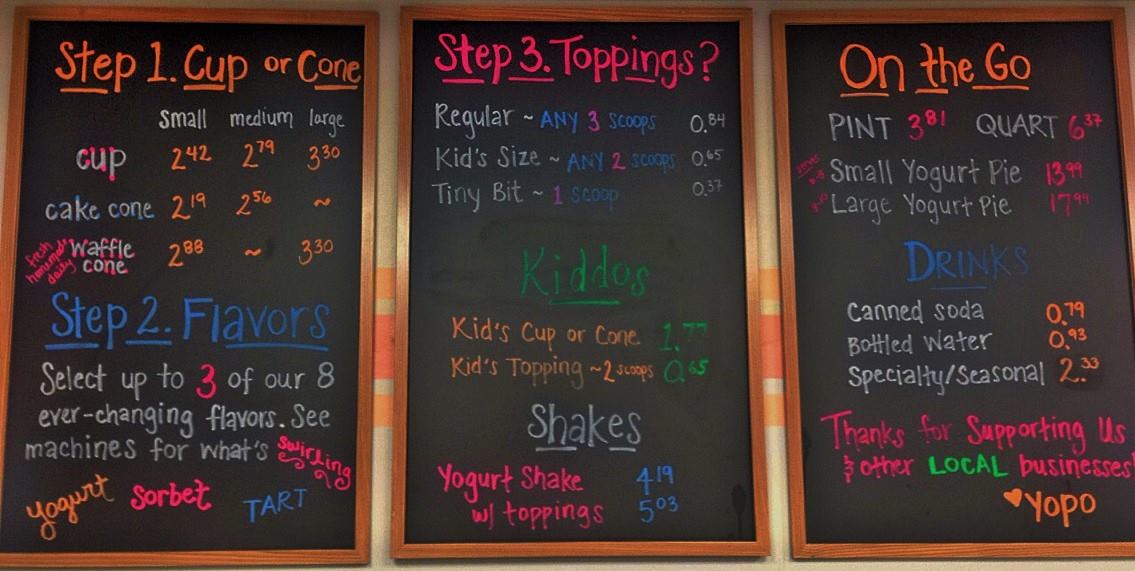 Step 1. Cup or Cone
small medium large
cup 2.42 2.79 3.30
cake cone 2.19 2.56 ~
fresh homemade daily Waffle cone 2.88 ~ 3.30
Step 2. Flavors
Select up to 3 of our 8
ever-changing flavors. See
machines for what's swirling
yogurt sorbet TART
Step 3. Toppings?
Regular ~ ANY 3 scoops 0.84
Kid's Size ~ ANY 2 scoops 0.65
Tiny Bit ~ 1 scoop 0.37
Kiddos
Kid's Cup or Cone 1.77
Kid's Topping ~ 2 scoops 0.65
Shakes
Yogurt Shake 4.19
w/ toppings 5.03
On the Go
PINT 3.81 QUART 6.37
Small Yogurt Pie 13.99
Large Yogurt Pie 17.99
DRINKS
Canned soda 0.79
Bottled Water 0.93
Specialty/Seasonal 2.33
Thanks for Supporting Us
& other LOCAL businesses!
♥ yopo